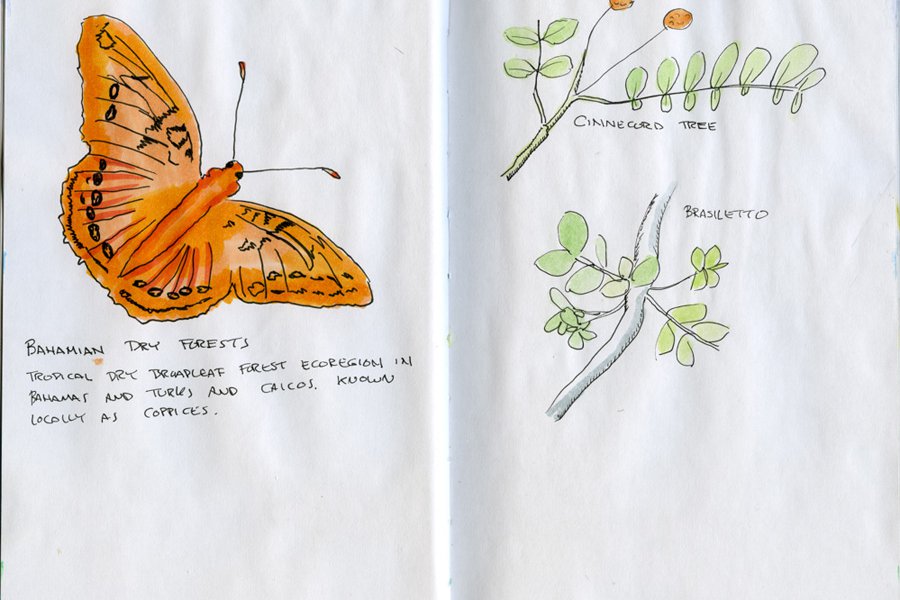 BAHAMIAN DRY FORESTS
TROPICAL DRY BROADLEAF FOREST ECOREGION IN
BAHAMAS AND TURKS AND CAICOS. KNOWN
LOCALLY AS COPPICES.
CINNECORD TREE
BRASILETTO